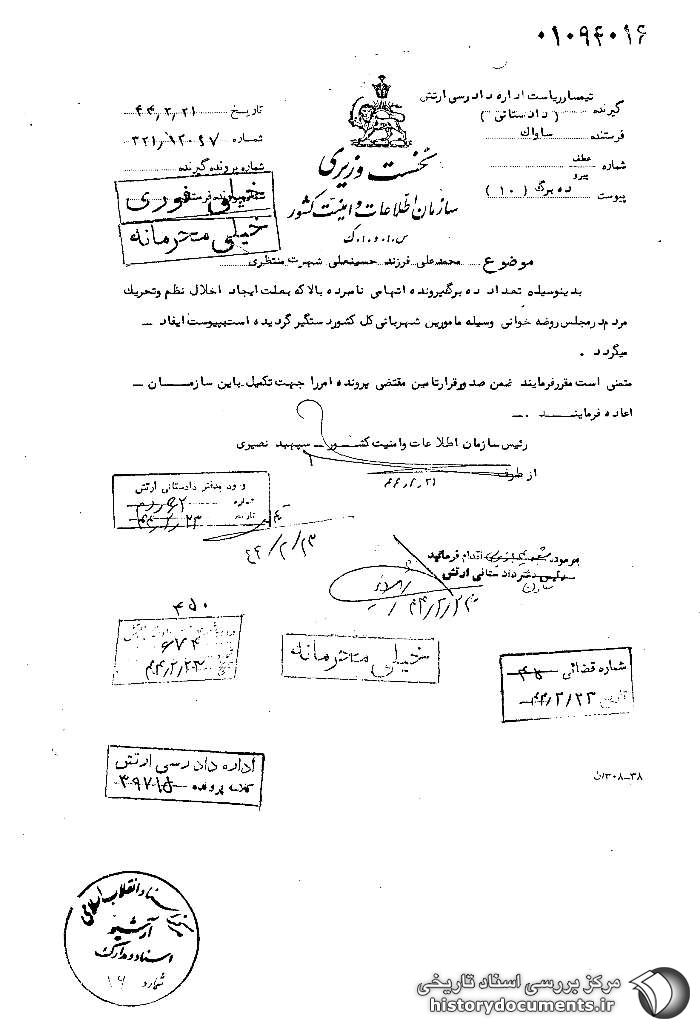 ۰۱۰۹۴۰۱۶
تیمسار ریاست اداره دادرسی ارتش
گیرنده ( دادستانی )
فرستنده ساواک
شماره عطف
پیرو
پیوست ده برگ ( ۱۰ )
نخست وزیری
سازمان اطلاعات و امنیت کشور
س.ا.و.ا.ک
تاریخ ۴۴/۲/۲۱
شماره
شماره پرونده گیرنده
خیلی فوری
خیلی محرمانه
موضوع محمدعلی فرزند حسینعلی شهرت منتظری
بدینوسیله تعداد ده برگ پرونده اتهامی نامبرده بالا که بعلت ایجاد اخلال نظم و تحریک
مردم در مجلس روضه خوانی وسیله مامورین شهربانی کل کشور دستگیر گردیده است بپیوست ایفاد ــ
میگردد .
متمنی است مقرر فرمایند ضمن صدور قرار تامین مقتضی پرونده امر را جهت تکمیل باین سازمــــان ــ
اعاده فرماینــــد .ــ
رئیس سازمان اطلاعات و امنیت کشــور ــ سپهبد نصیری
از طرف
۴۴/۲/۲۱
ورود بدفتر دادستانی ارتش
شماره
تاریخ ۴۴/۲/۲۳
۴۴/۲/۲۳
اقدام فرمائید
دادستانی ارتش
۴۵۰
۶۷۴
۴۴/۲/۲۳
خیلی محرمانه
شماره قضائی
تاریخ ۴۴/۲/۲۳
اداره دادرسی ارتش
کلاسه پرونده
۳۰۸-۳۸/ن
مرکز اسناد انقلاب اسلامی
آرشیو
اسناد و مدارک
شماره ۱۶
مرکز بررسی اسناد تاریخی
historydocuments.ir